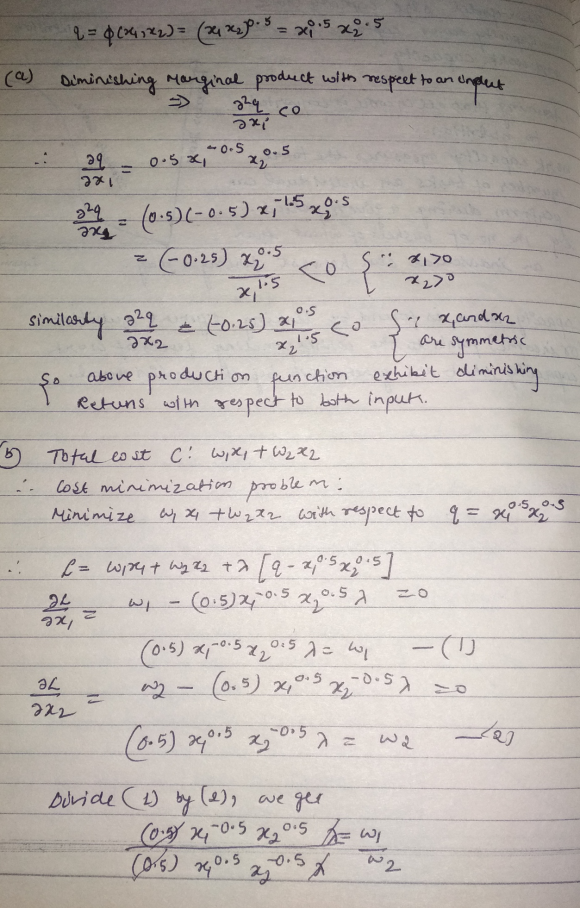 q = φ(x₁, x₂) = (x₁ x₂)^0.5 = x₁^0.5 x₂^0.5
(a) Diminishing Marginal product with respect to an input
⇒ ∂²q/∂xᵢ < 0
∴ ∂q/∂x₁ = 0.5 x₁^-0.5 x₂^0.5
∂²q/∂x₁ = (0.5)(-0.5) x₁^-1.5 x₂^0.5
= (-0.25) x₂^0.5/x₁^1.5 < 0 { ∵ x₁>0 x₂>0
similarly ∂²q/∂x₂ = (-0.25) x₁^0.5/x₂^1.5 < 0 { ∵ x₁ and x₂ are symmetric
So above production function exhibit diminishing
Returns with respect to both inputs.
(b) Total cost C: w₁x₁ + w₂x₂
∴ Cost minimization problem:
Minimize w₁x₁ + w₂x₂ with respect to q = x₁^0.5 x₂^0.5
∴ L = w₁x₁ + w₂x₂ + λ [q - x₁^0.5 x₂^0.5]
∂L/∂x₁ = w₁ - (0.5) x₁^-0.5 x₂^0.5 λ = 0
(0.5) x₁^-0.5 x₂^0.5 λ = w₁ — (1)
∂L/∂x₂ = w₂ - (0.5) x₁^0.5 x₂^-0.5 λ = 0
(0.5) x₁^0.5 x₂^-0.5 λ = w₂ — (2)
Divide (1) by (2), we get
(0.5) x₁^-0.5 x₂^0.5 λ / (0.5) x₁^0.5 x₂^-0.5 λ = w₁/w₂